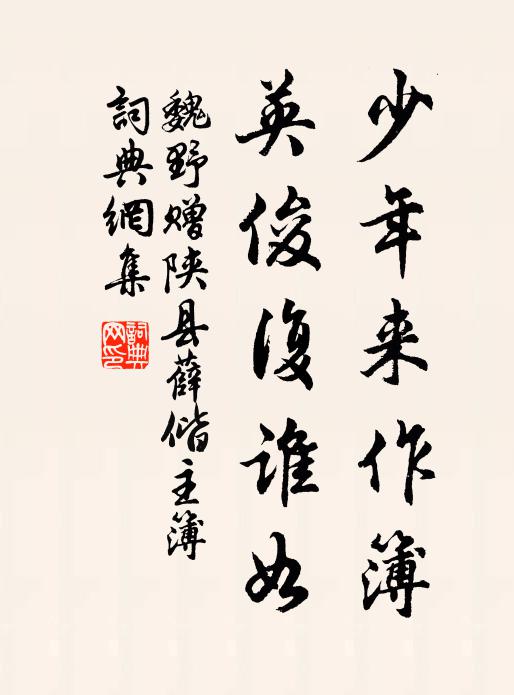 少年来作簿
英俊復誰如
魏野赠陕县薛偕主簿
詞典網集
詞典网印